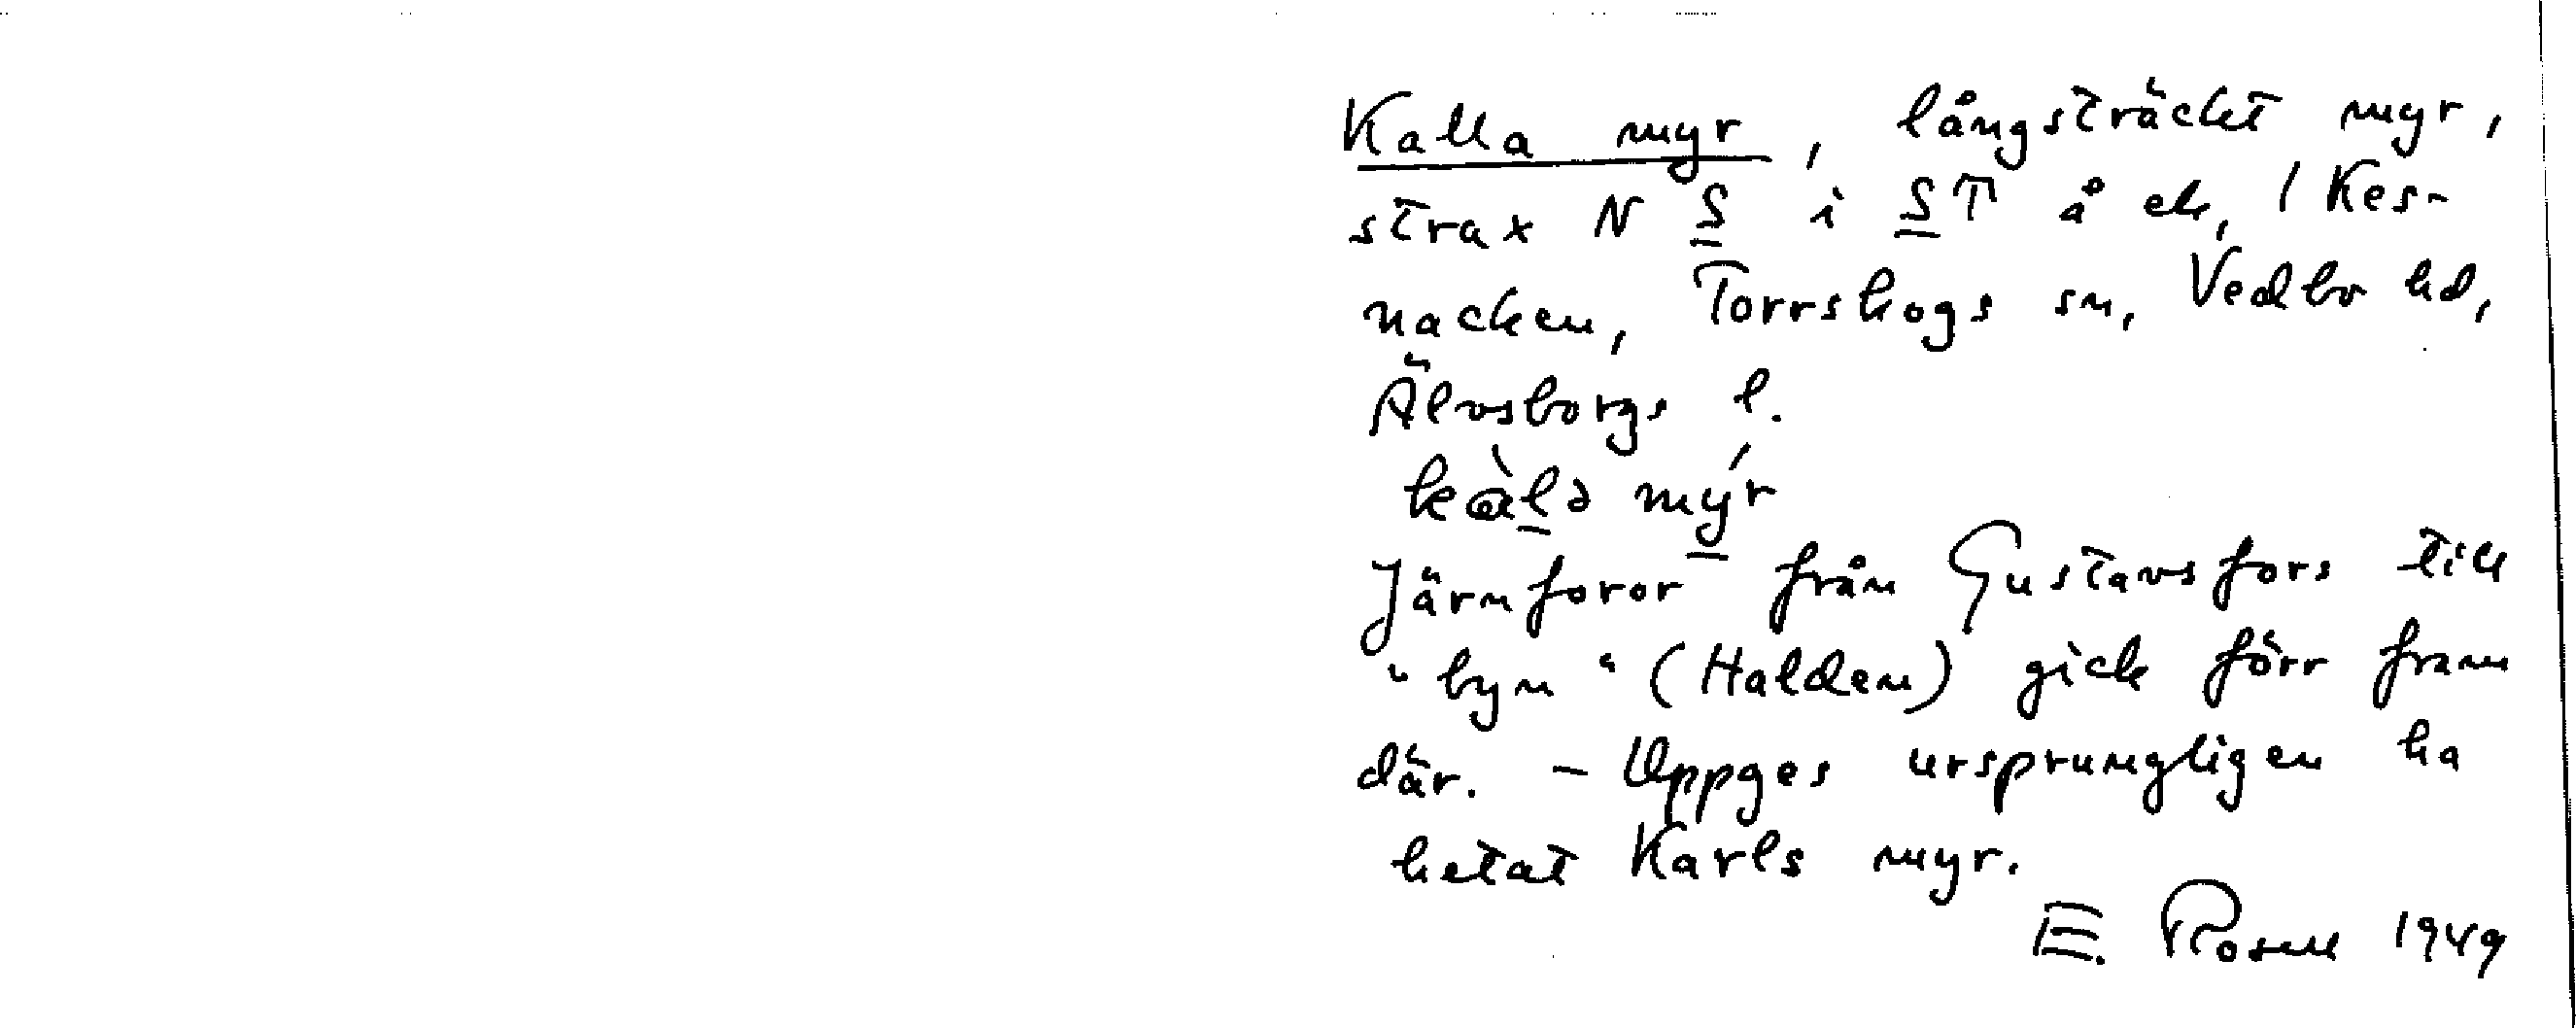 Kalla myr, långsträckt myr,
strax N S i ST å ek, 1 Kes-
nacken, Torrskogs sn, Vedbo hd,
Älvsborgs l.
kàlə mýr
Järnforor från Gustavsfors till
"byn" (Halden) gick förr fram
där. - Uppges ursprungligen ha
hetat Karls myr.
E. Rosell 1949